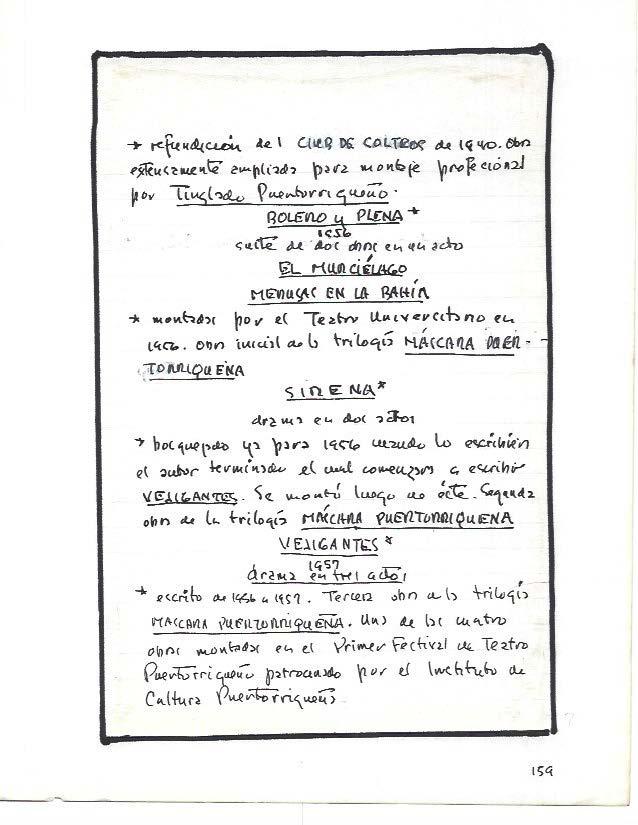 * refundición del CLUB DE SOLTEROS de 1940. Obra
extensamente ampliada para montaje profecional
por Tinglado Puertorriqueño.
BOLERO y PLENA*
1956
suite de dos obras en un acto
EL MURCIÉLAGO
MEDUSAS EN LA BAHÍA
* montadas por el Teatro Universitario en
1956. Obra inicial de la trilogía MÁSCARA PUER-
TORRIQUEÑA
SIRENA*
drama en dos actos
* bosquejado ya para 1956 cuando lo escribiera
el autor terminado el cual comenzara a escribir
VEJIGANTES. Se montó luego de éste. Segunda
obra de la trilogía MÁSCARA PUERTORRIQUEÑA
VEJIGANTES*
1957
drama en tres actos
* escrito de 1956 a 1957. Tercera obra de la trilogía
MASCARA PUERTORRIQUEÑA. Una de las cuatro
obras montadas en el Primer Festival de Teatro
Puertorriqueño patrocinado por el Instituto de
Cultura Puertorriqueña.
159